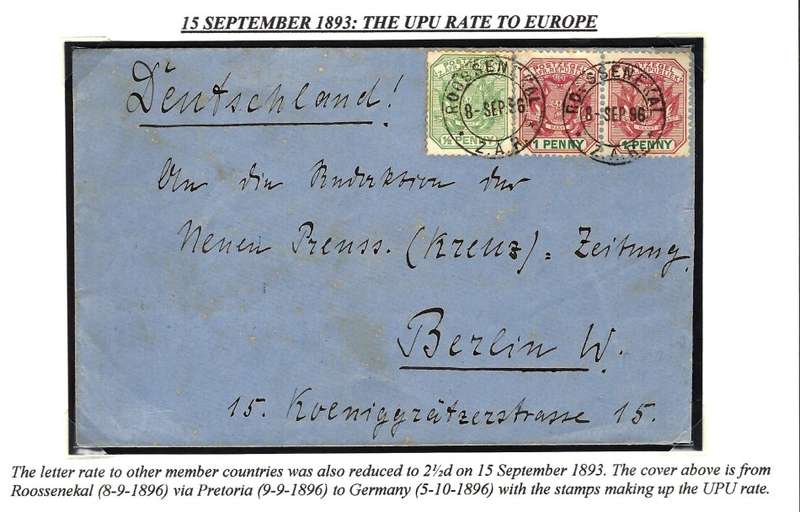 15 SEPTEMBER 1893: THE UPU RATE TO EUROPE
Deutschland!
½ PENNY
1 PENNY
1 PENNY
ROOSSENEKAL
8-SEP 96
Z.A.R.
ROOSSENEKAL
8-SEP 96
Z.A.R.
An die Redaktion der
Neuen Preuss. (Kreuz)=Zeitung
Berlin W.
15. Koeniggrätzerstrasse 15.
The letter rate to other member countries was also reduced to 2½d on 15 September 1893. The cover above is from
Roossenekal (8-9-1896) via Pretoria (9-9-1896) to Germany (5-10-1896) with the stamps making up the UPU rate.